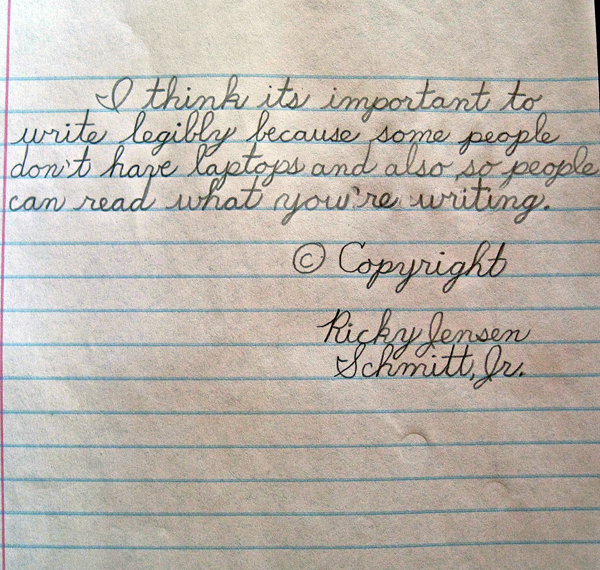 I think its important to
write legibly because some people
don't have laptops and also so people
can read what you're writing.
© Copyright
Ricky Jensen
Schmitt, Jr.